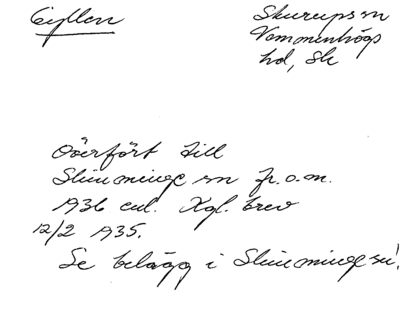 Gyllen
Skurups sn
Vemmenhögs
hd, Sk
Överfört till
Slimminge sn fr.o.m.
1936 enl. Kgl. brev
12/2 1935.
Se belägg i Slimminge sn!